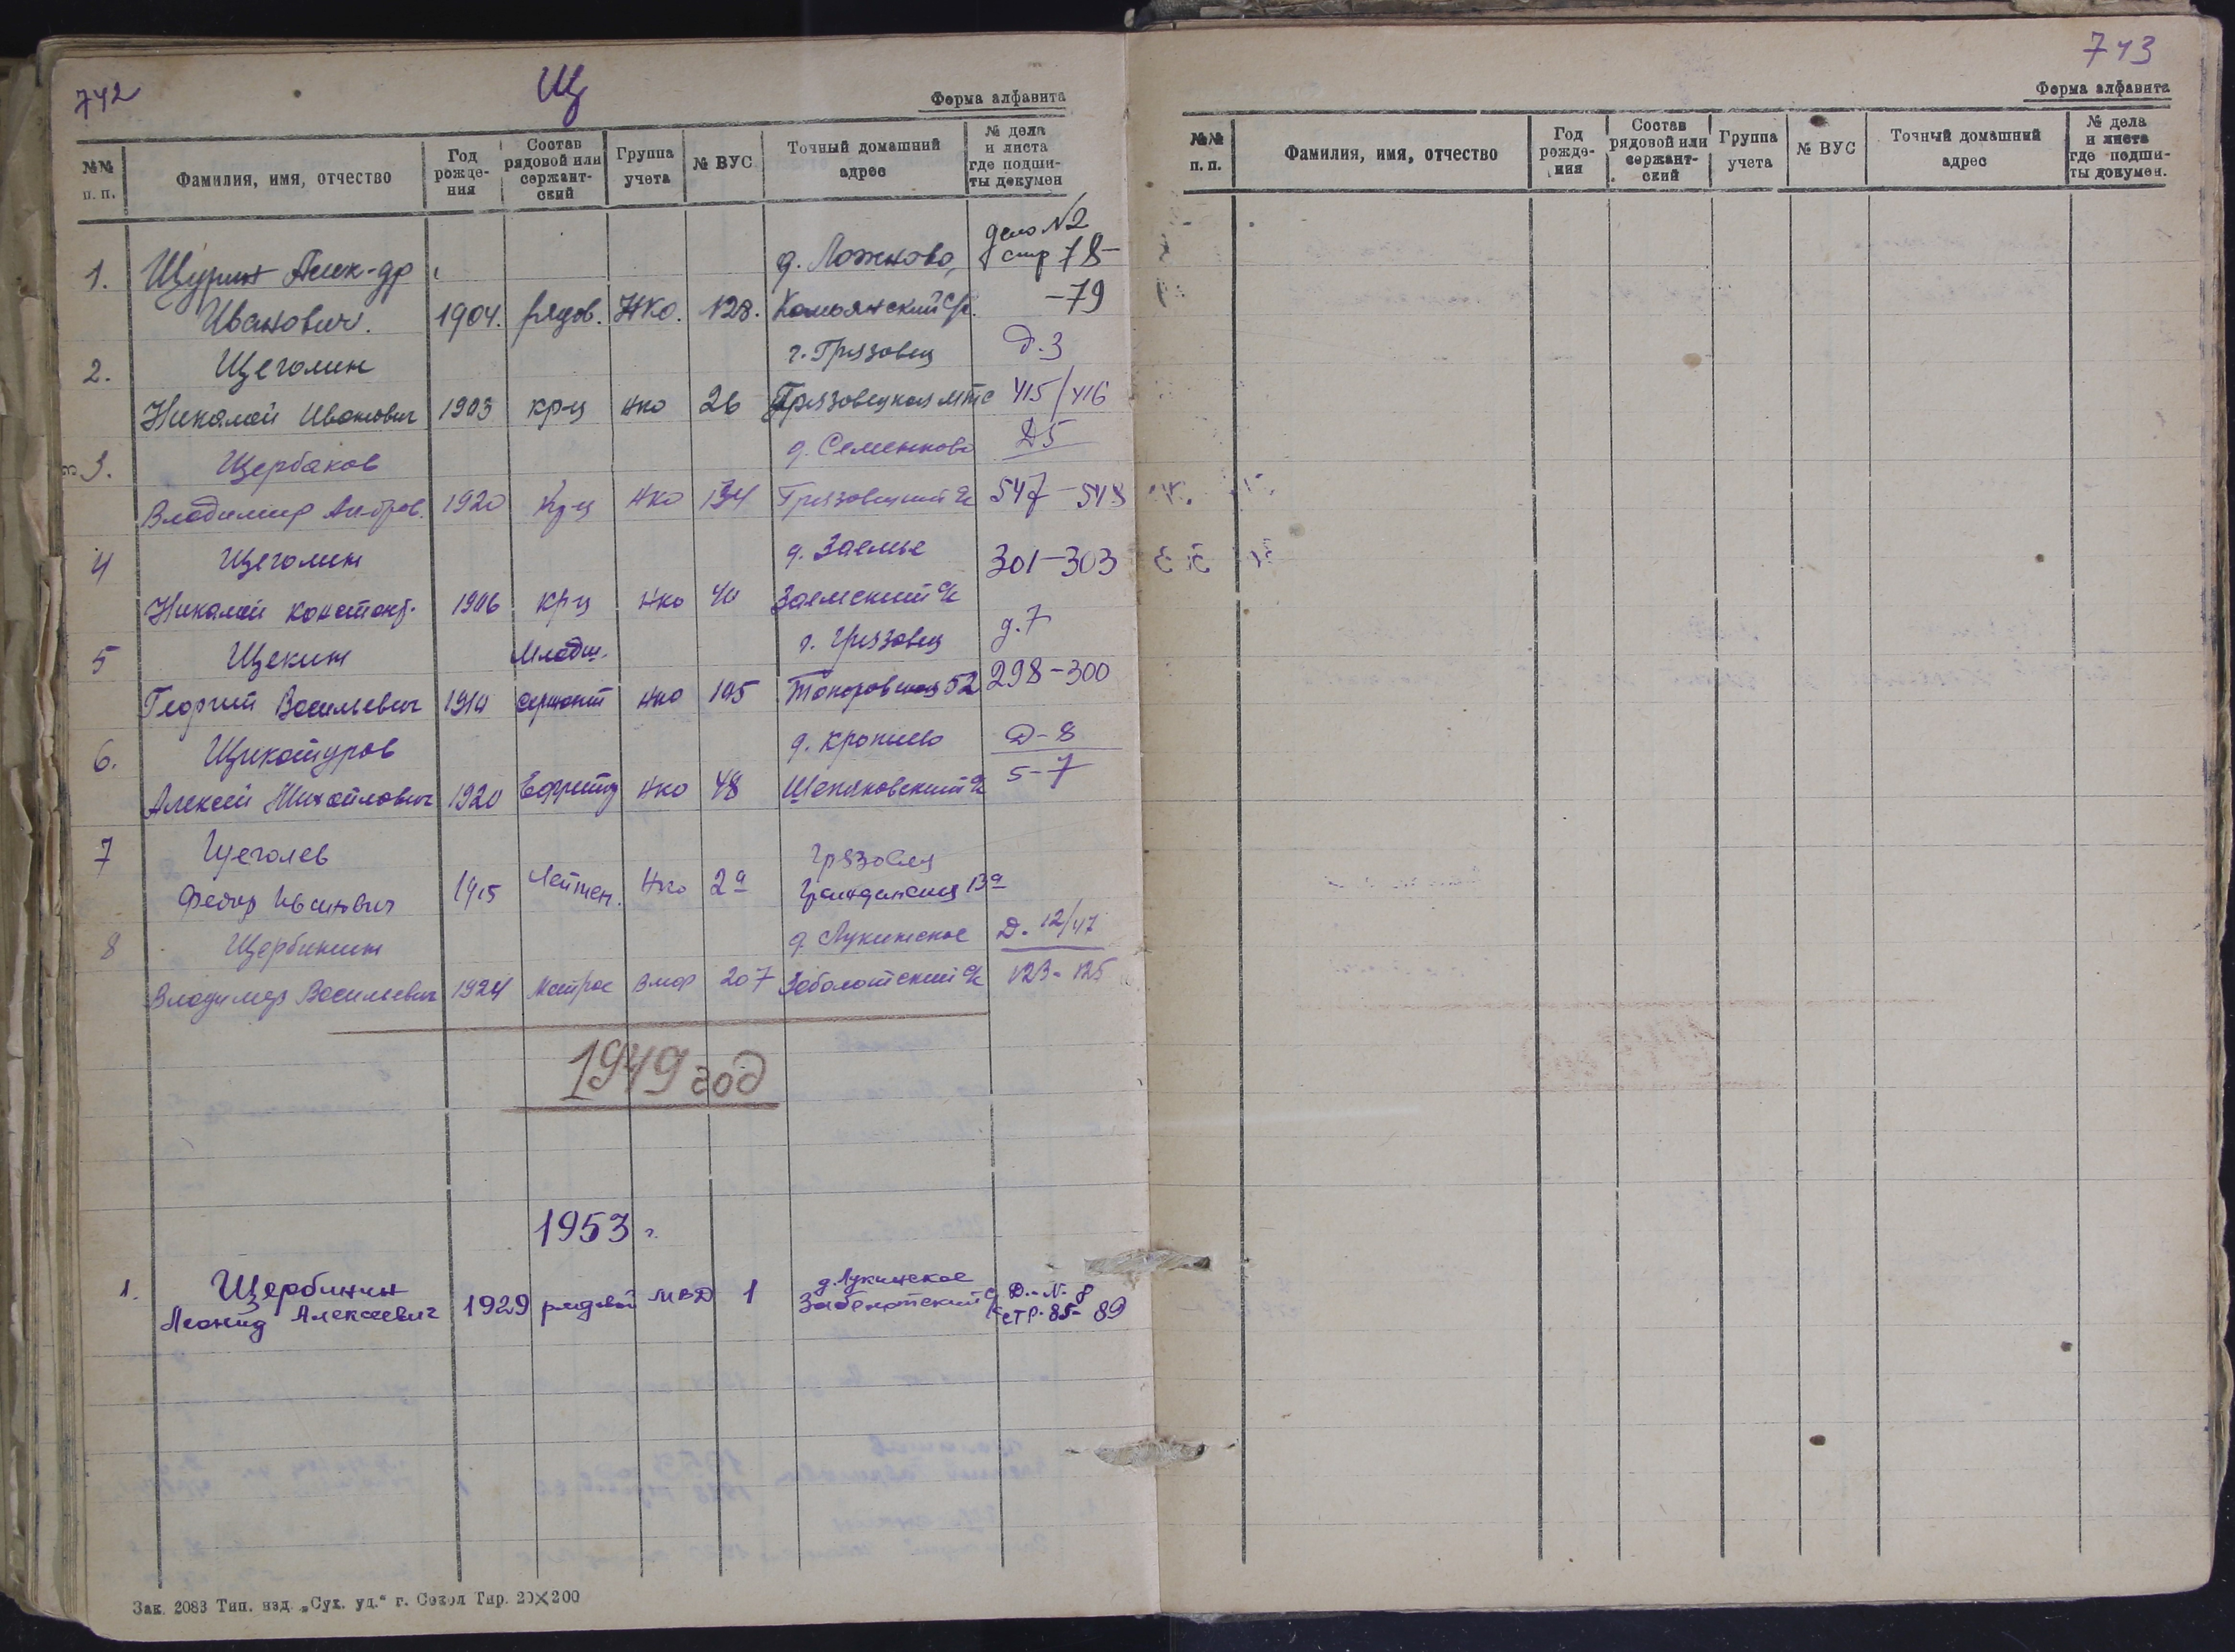 742
Щ
Форма алфавита
№№ п. п.
Фамилия, имя, отчество
Год рождения
Состав рядовой или сержантский
Группа учета
№ ВУС
Точный домашний адрес
№ дела и листа где подшиты докумен
д. Ложново, дело №2
1. Щурин Алек-др стр 78-
Иванович. 1904. рядов. НКО. 128. Комьянский с/с. -79
2. Щеголин г. Грязовец д.3
Николай Иванович 1903 кр-ц нко 26 Грязовецкая мтс 415/416
3. Щербаков д. Семенково Д5
Владимир 1920 кр-ц нко 134 Грязовецкий с/с 547-548
4 Щеголин д. Заемье 301-303
Николай Констант. 1906 кр-ц нко 40 Заемский с/с
5 Щекин Младш. г. Грязовец д.7
Георгий Васильевич 1910 сержант нко 105 52 298-300
6. Щикатуров д. Д-8
Алексей Михайлович 1920 Ефрейтор нко 48 с/с 5-7
7 Щеголев Грязовец
Федор Иванович 1915 Лейтен. Нко 2а Гражданская 13а
8 Щербинин д. Лукинское Д. 12/47
Владимир Васильевич 1924 Матрос Вмф 207 Заболотский с/с 123-125
1949 год
1953 г.
1. Щербинин д. Лукинское Д.-№ 8
Леонид Алексеевич 1929 рядовой МВД 1 Заболотский с/с стр. 85-89
Зак. 2083 Тип. изд. „Сух. уд.“ г. Сокол Тир. 20×200
743
Форма алфавита
№№ п. п.
Фамилия, имя, отчество
Год рождения
Состав рядовой или сержантский
Группа учета
№ ВУС
Точный домашний адрес
№ дела и листа где подшиты докумен.